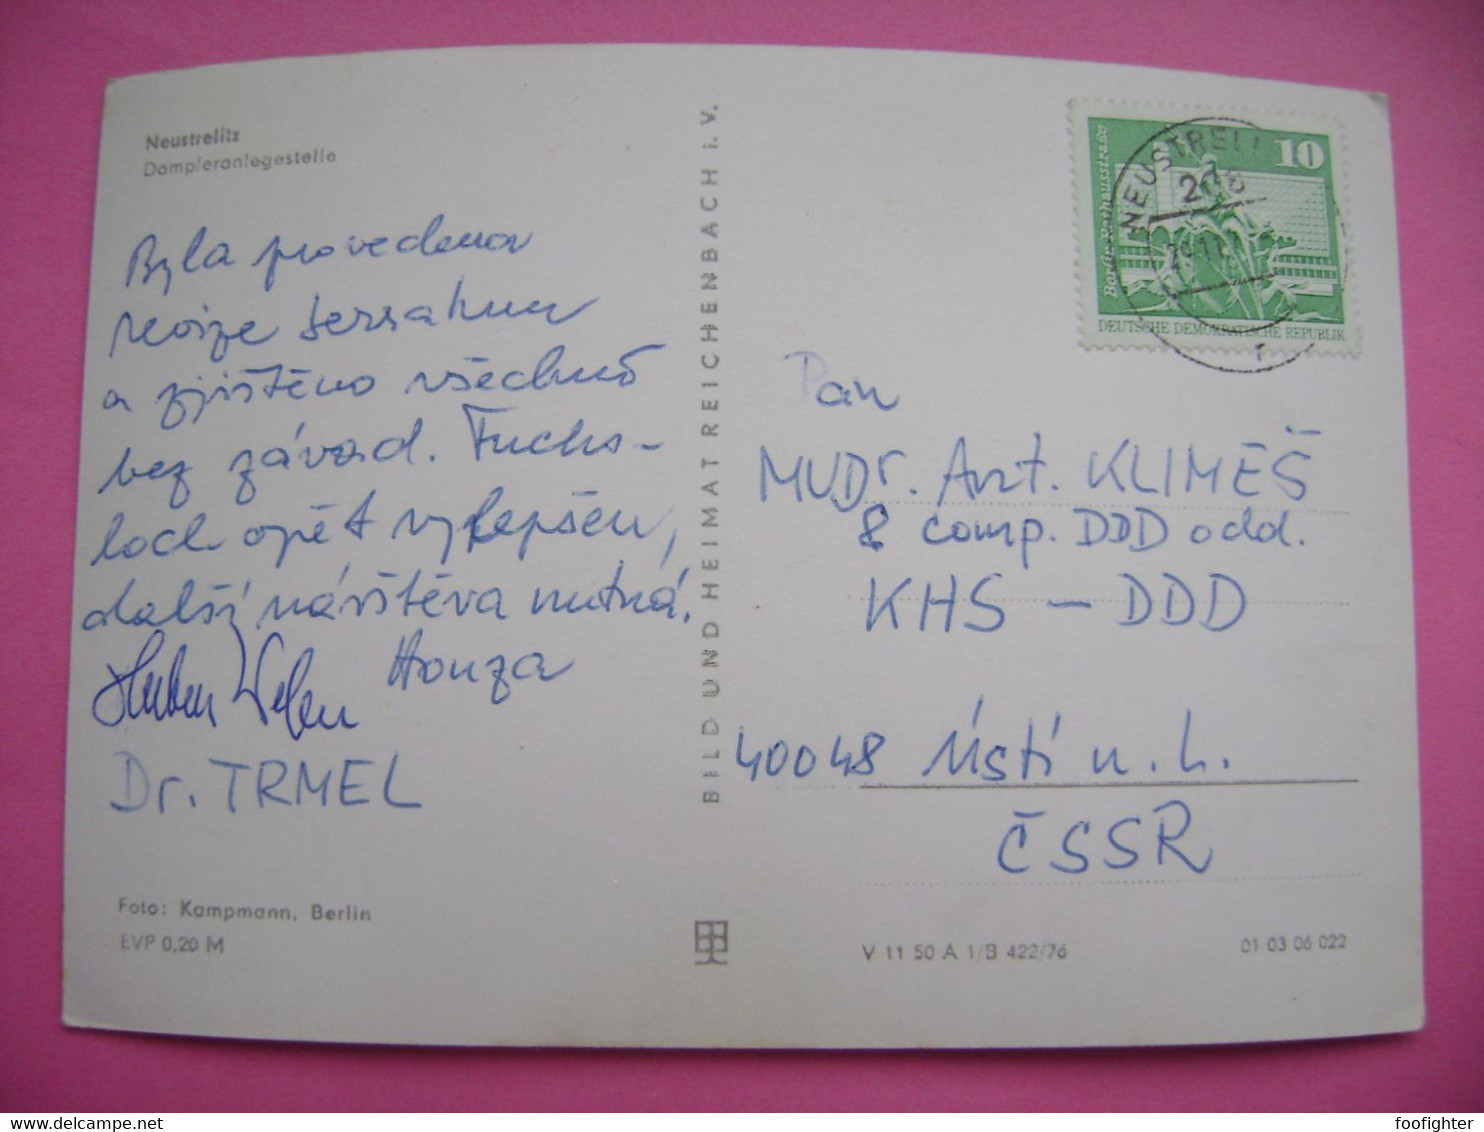 Neustrelitz
Dampferanlegestelle
Byla provedena
revize
a zjištěno všechno
bez závad. Fuchs-
loch opět vylepšen,
další návštěva nutná.
Honza
Dr. TRMEL
Foto: Kampmann, Berlin
EVP 0,20 M
BILD UND HEIMAT REICHENBACH i. V.
NEUSTRELI
208
10
Berlin-Rathausstraße
DEUTSCHE DEMOKRATISCHE REPUBLIK
Pan
MUDr. Ant. KLIMEŠ
& comp. DDD odd.
KHS — DDD
40048 Ústí n. L.
ČSSR
V 11 50 A 1/B 422/76
01 03 06 022
foofighter
delcampe.net